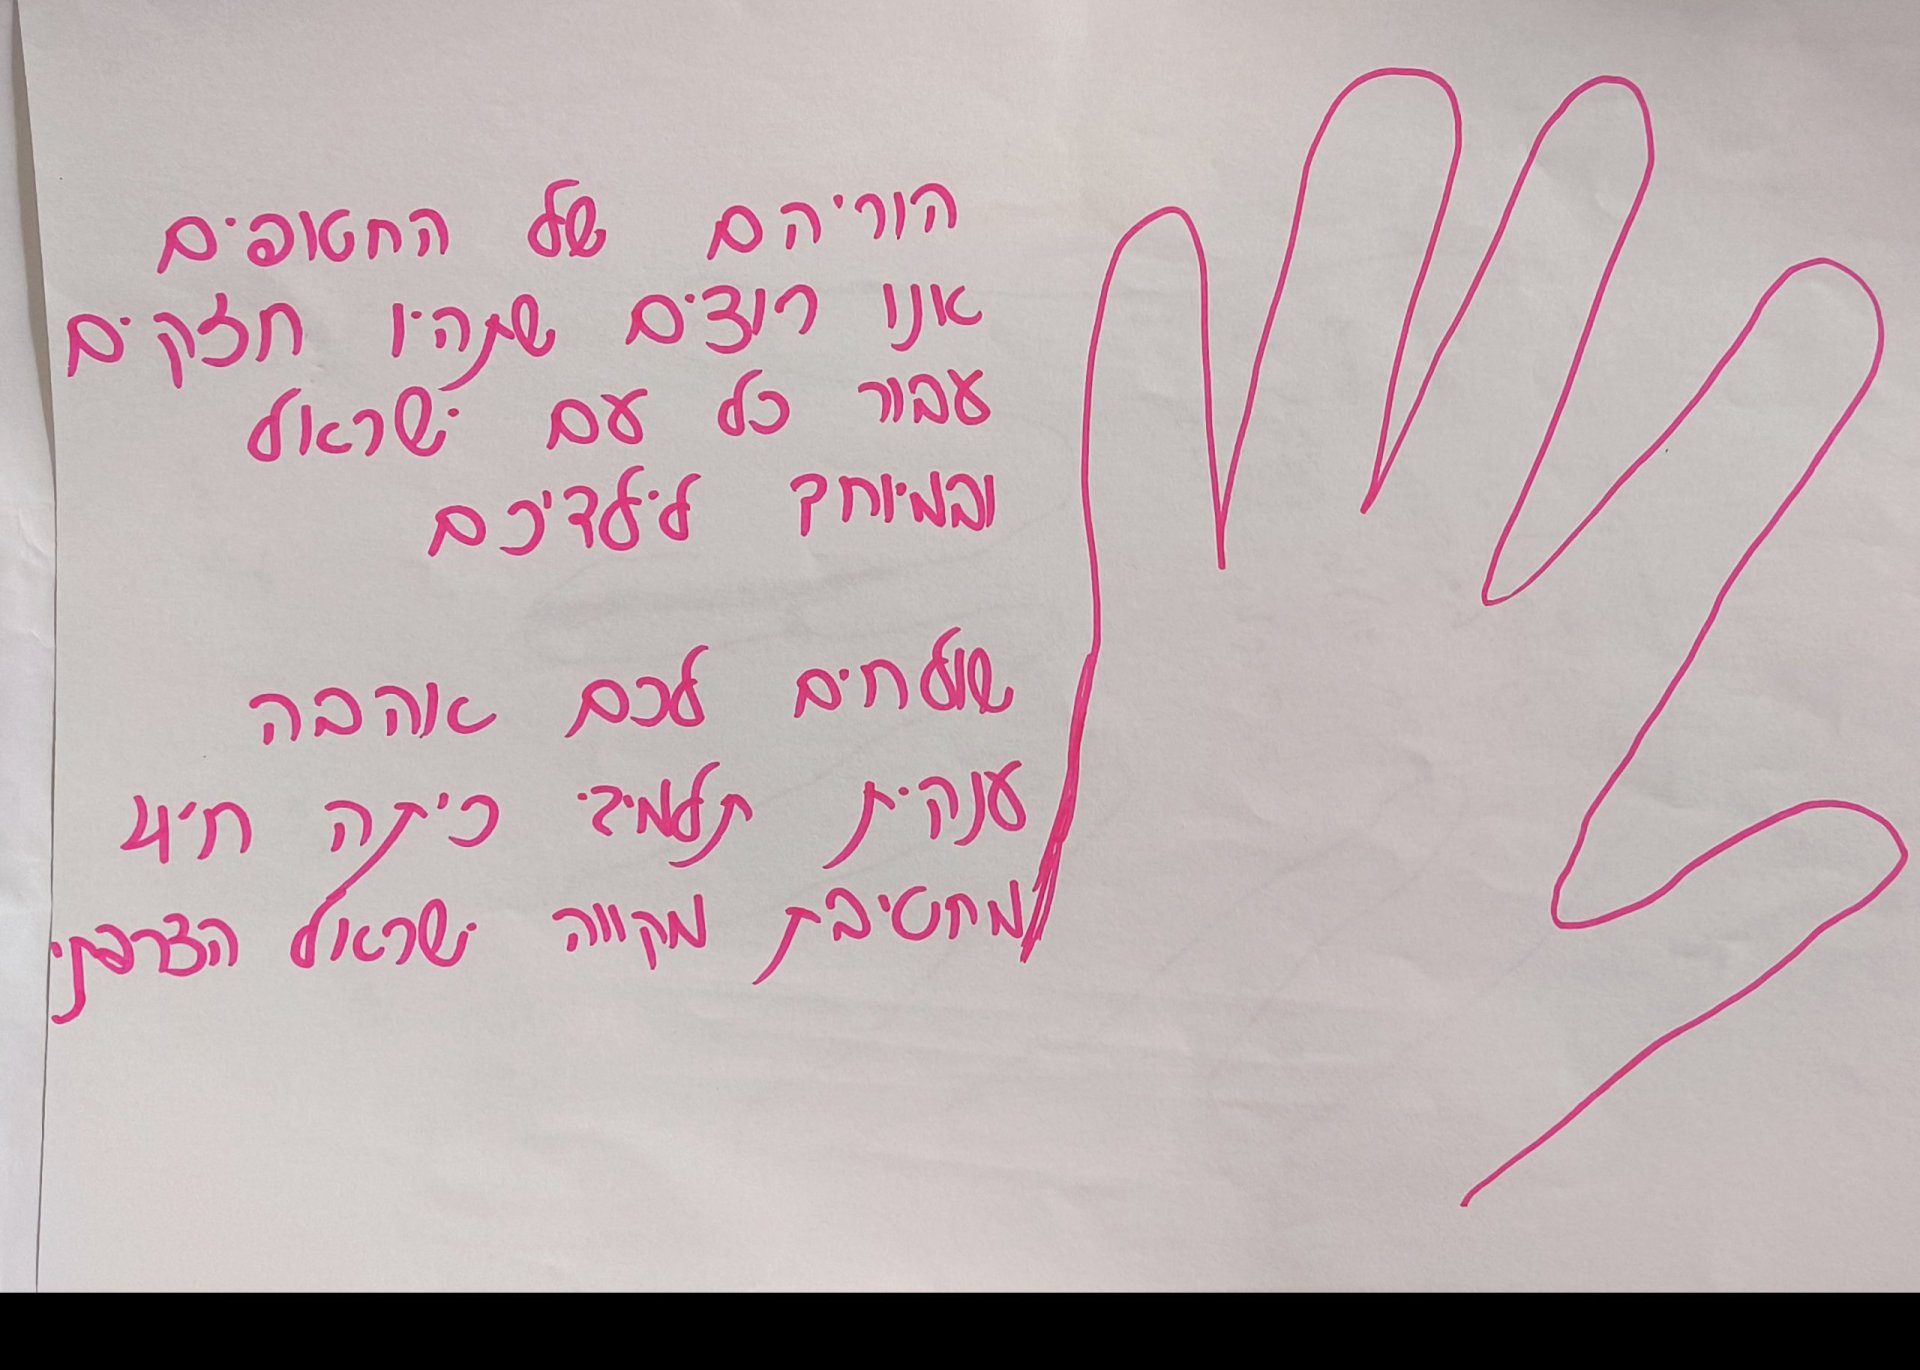 הוריהם של החטופים
אנו רוצים שתהיו חזקים
עבור כל עם ישראל
ובמיוחד לילדיכם
שולחים לכם אהבה
ענקית תלמידי כיתה ח'4
מחטיבת מקווה ישראל הצרפתי